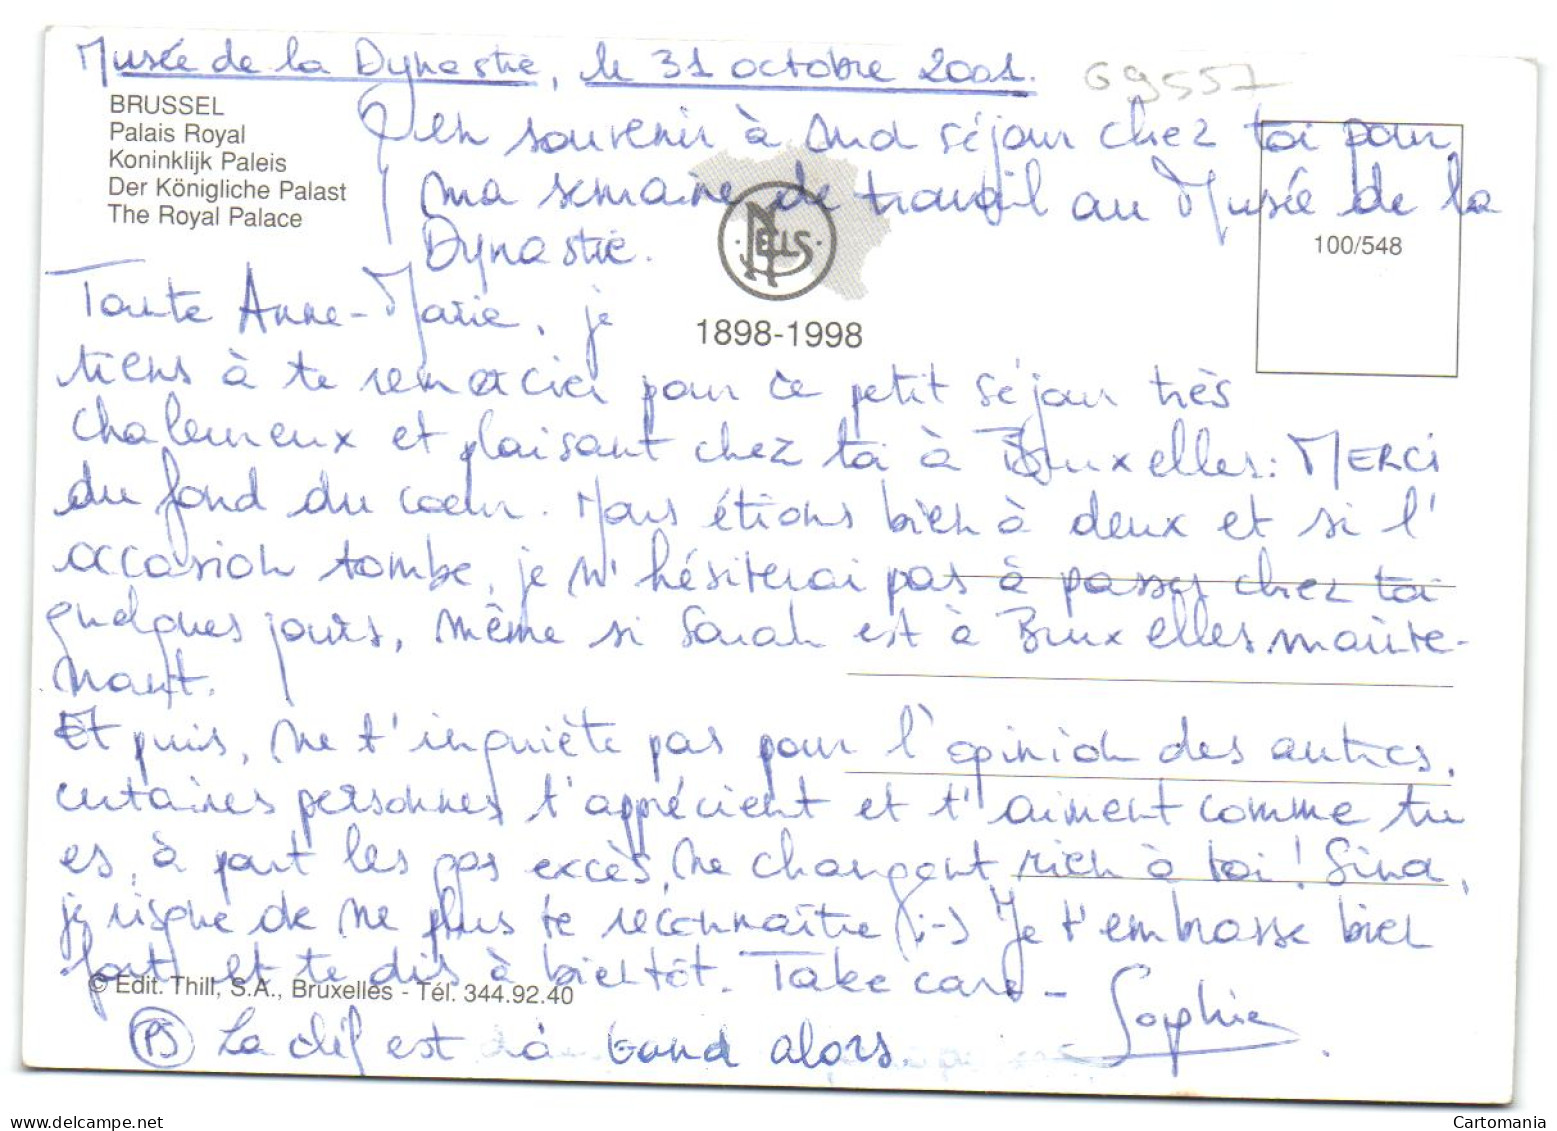 Musée de la Dynastie, le 31 octobre 2001.
69557
BRUSSEL
Palais Royal
Koninklijk Paleis
Der Königliche Palast
The Royal Palace
en souvenir à mon séjour chez toi pour
ma semaine de travail au Musée de la
Dynastie.
100/548
NELLS
1898-1998
Toute Anne-Marie, je
tiens à te remercier pour ce petit séjour très
chaleureux et plaisant chez toi à Bruxelles: MERCI
du fond du coeur. Nous étions bien à deux et si l'
occasion tombe, je n'hésiterai pas à passer chez toi
quelques jours, même si Sarah est à Bruxelles mainte-
nant.
Et puis, ne t'inquiète pas pour l'opinion des autres,
certaines personnes t'apprécient et t'aiment comme tu
es, à part les qqs excès, ne changent rien à toi! Sina,
je risque de ne plus te reconnaître (;-) Je t'embrasse bien
fort et te dis à bientôt. Take care -
Sophie
© Edit. Thill, S.A., Bruxelles - Tél. 344.92.40
PS La clef est à alors.
delcampe.net
Cartomania